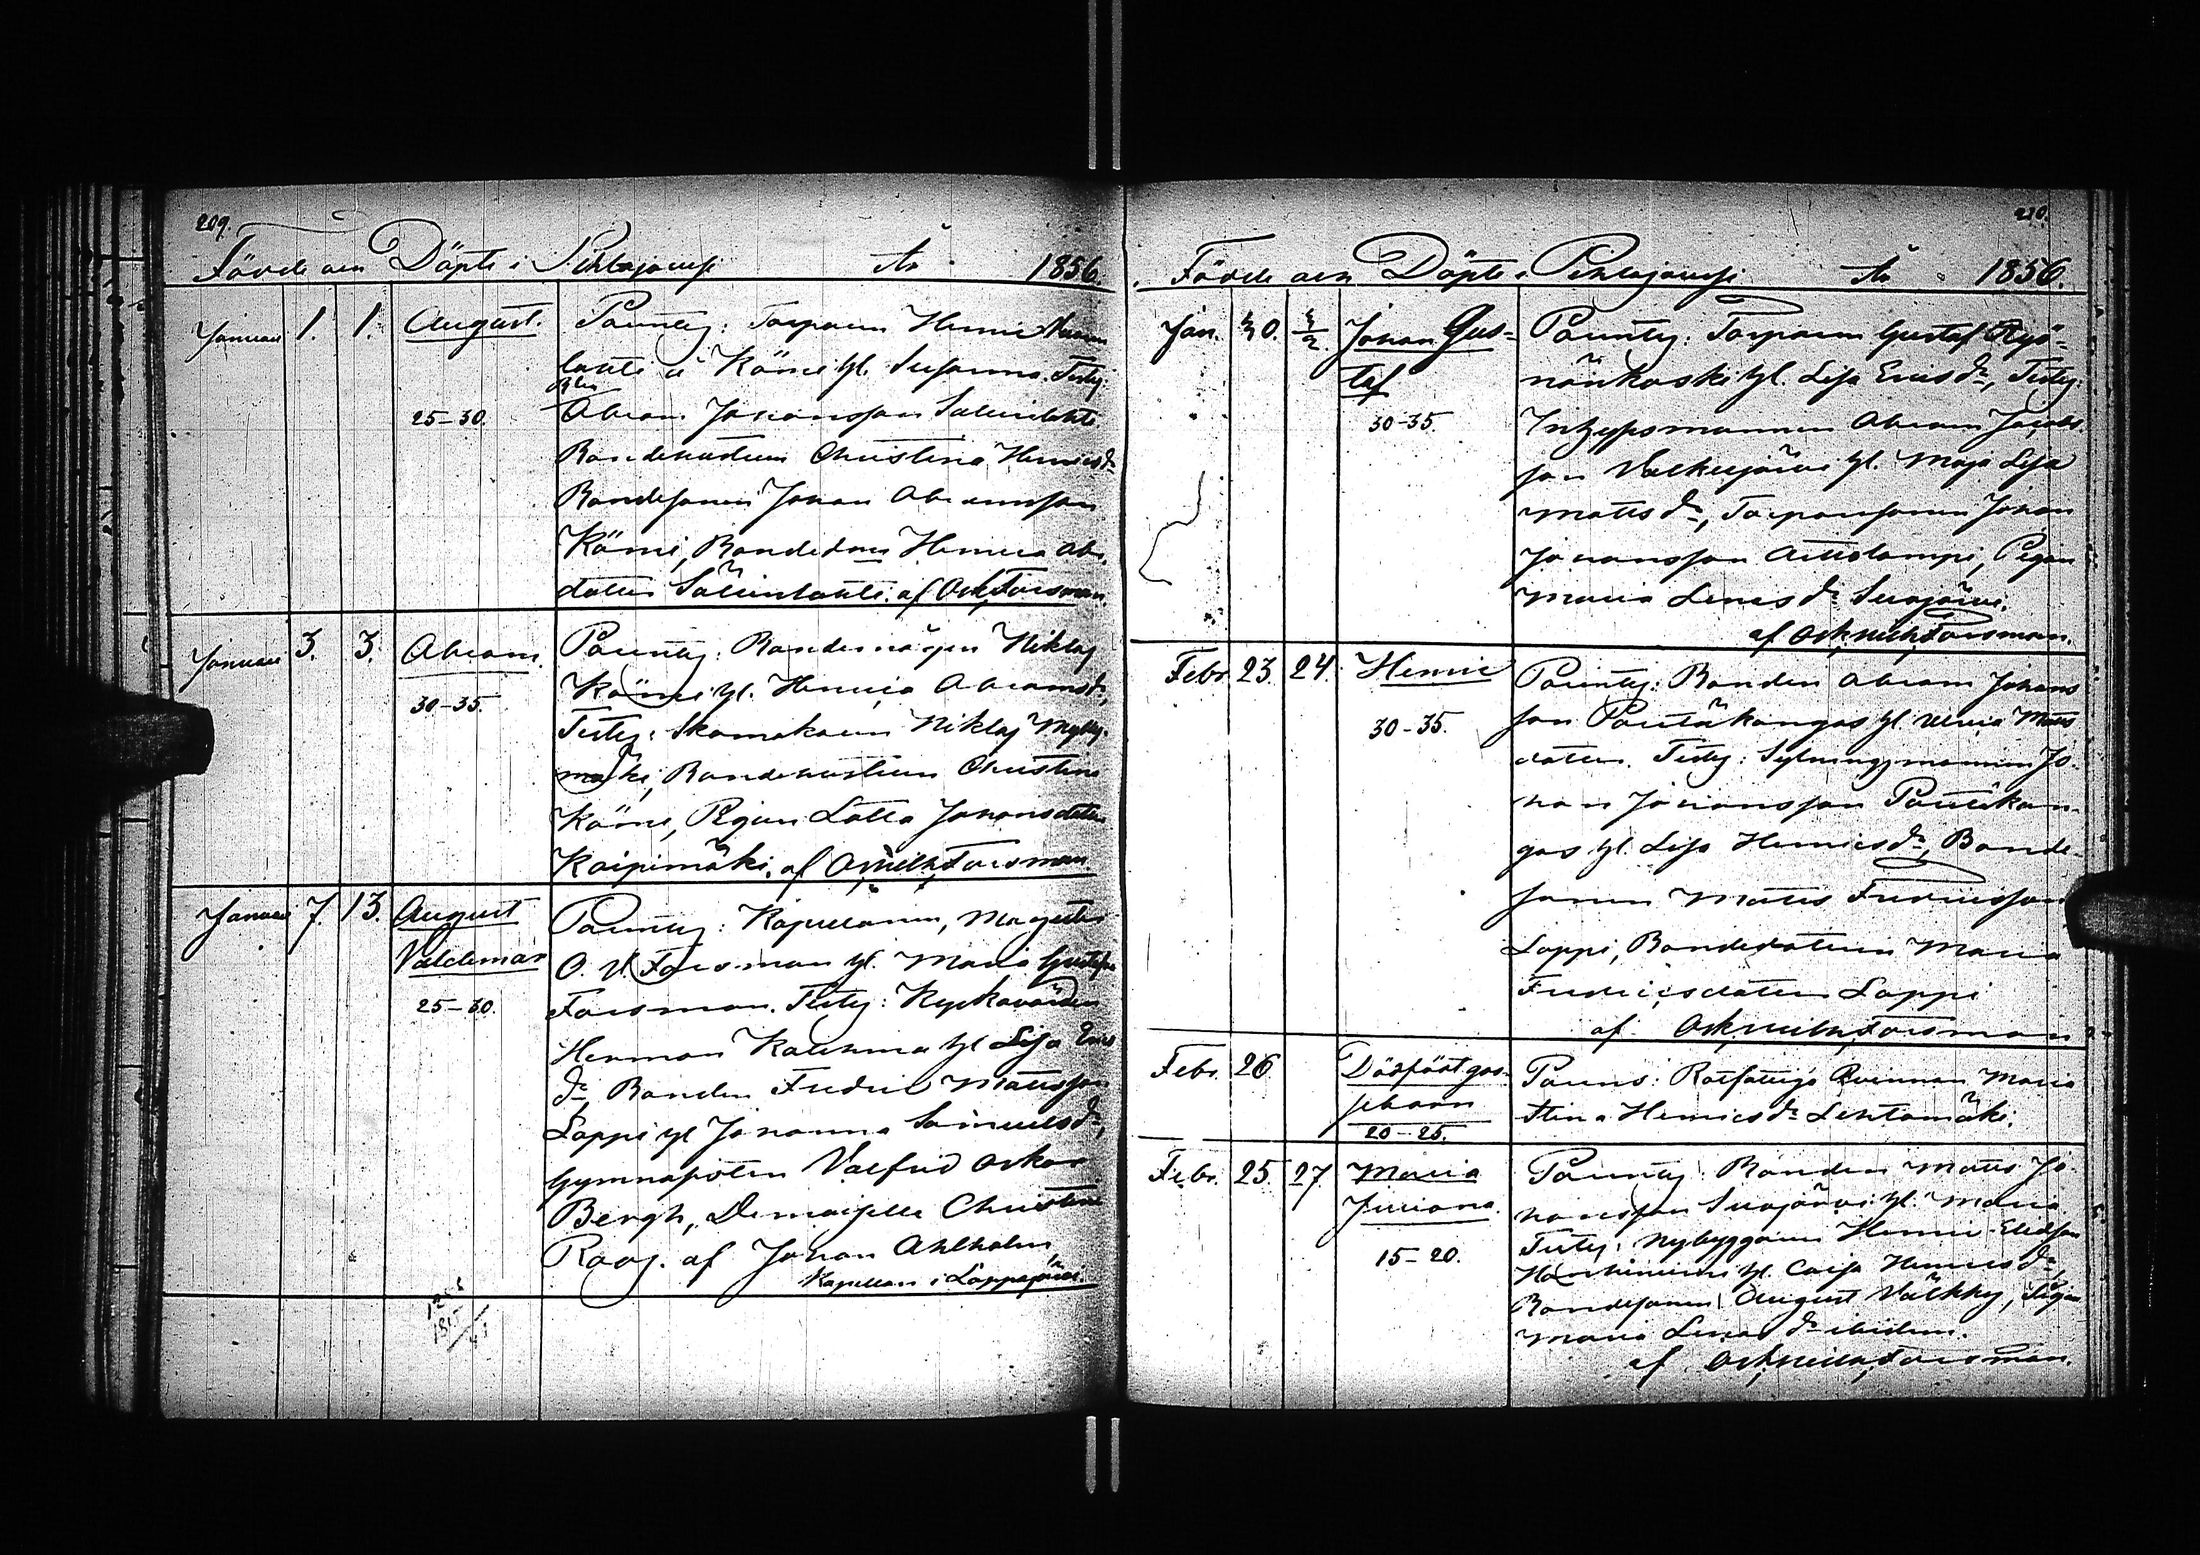 209.
Födde och Döpte i Pihlajavesi År 1856.
Januari 1. 1. August.
25–30.
Föräldrar: Torparen Henric
lahti å Kömi hl. Susanna. Testes:
Abram Johansson Salmilahti
Bondehustrun Christina Henricsdr
Bondesonen Johan Abramsson
Kömi, Bondedottren Henrica Abr.
dotter Salmilahti. af Osk. Forsman.
Januari 3. 3. Abram.
30–35.
Föräldrar: Bondemågen Niklas
Kömi hl. Henrica Abramsdr,
Testes: Skomakaren Niklas Mylly-
mäki, Bondehustrun Christina
Kömi, Pigan Lotta Johansdotter
Kaipimäki. af O. Wilh. Forsman.
Januari 7. 13. August
Valdemar
25–30.
Föräldrar: Kapellanen, Magister
O. W. Forsman hl. Maria Gustafva
Forsman. Testes: Kyrkovärden
Herman hl Lisa Erics
dr, Bonden Fredric Mattsson
Lappi hl Johanna Samuelsdr,
Gymnasisten Valfrid Oskar
Bergh, Demoiselle Christina
Roos. af Johan Ahlholm
Kapellan i Lappajärvi.
210.
Födde och Döpte i Pihlajavesi År 1856.
Jan. 30. 3/2. Johan Gus-
taf
30–35.
Föräldrar: Torparen Gustaf Ryö-
nänkoski hl. Lisa Ericsdr, Testes:
Inhysesmannen Abram Jacobs-
son Valkeajärvi hl. Maja Lisa
Mattsdr, Torparesonen Johan
Johansson Auttolampi, Pigan
Maria Lenasdr Surojärvi.
af Osk. Wilh. Forsman.
Febr. 23. 24. Henric
30–35.
Föräldrar: Bonden Abram Johans
son Poutiäkangas hl Matts
dotter. Testes: Sytningsmannen Jo-
han Johansson Poutiäkan-
gas hl. Lisa Henricsdr, Bonde-
sonen Matts Fredricsson
Lappi, Bondedottren Maria
Fredricsdotter Lappi
af Osk. Wilh. Forsman
Febr. 26. Dödfödt gos-
sebarn
20–25.
Parens: Rotfattiga Qvinnan Maria
Stina Henricsdr Lehtomäki.
Febr. 25. 27 Maria
Juliana.
15–20.
Föräldrar: Bonden Matts Jo-
hansson Surojärvi hl. Maria
Testes: Nybyggaren Henric
hl. Caisa Henricsdr,
Bondesonen August Välkky, Pigan
Maria Lenasdr ibidem.
af Osk. Wilh. Forsman.